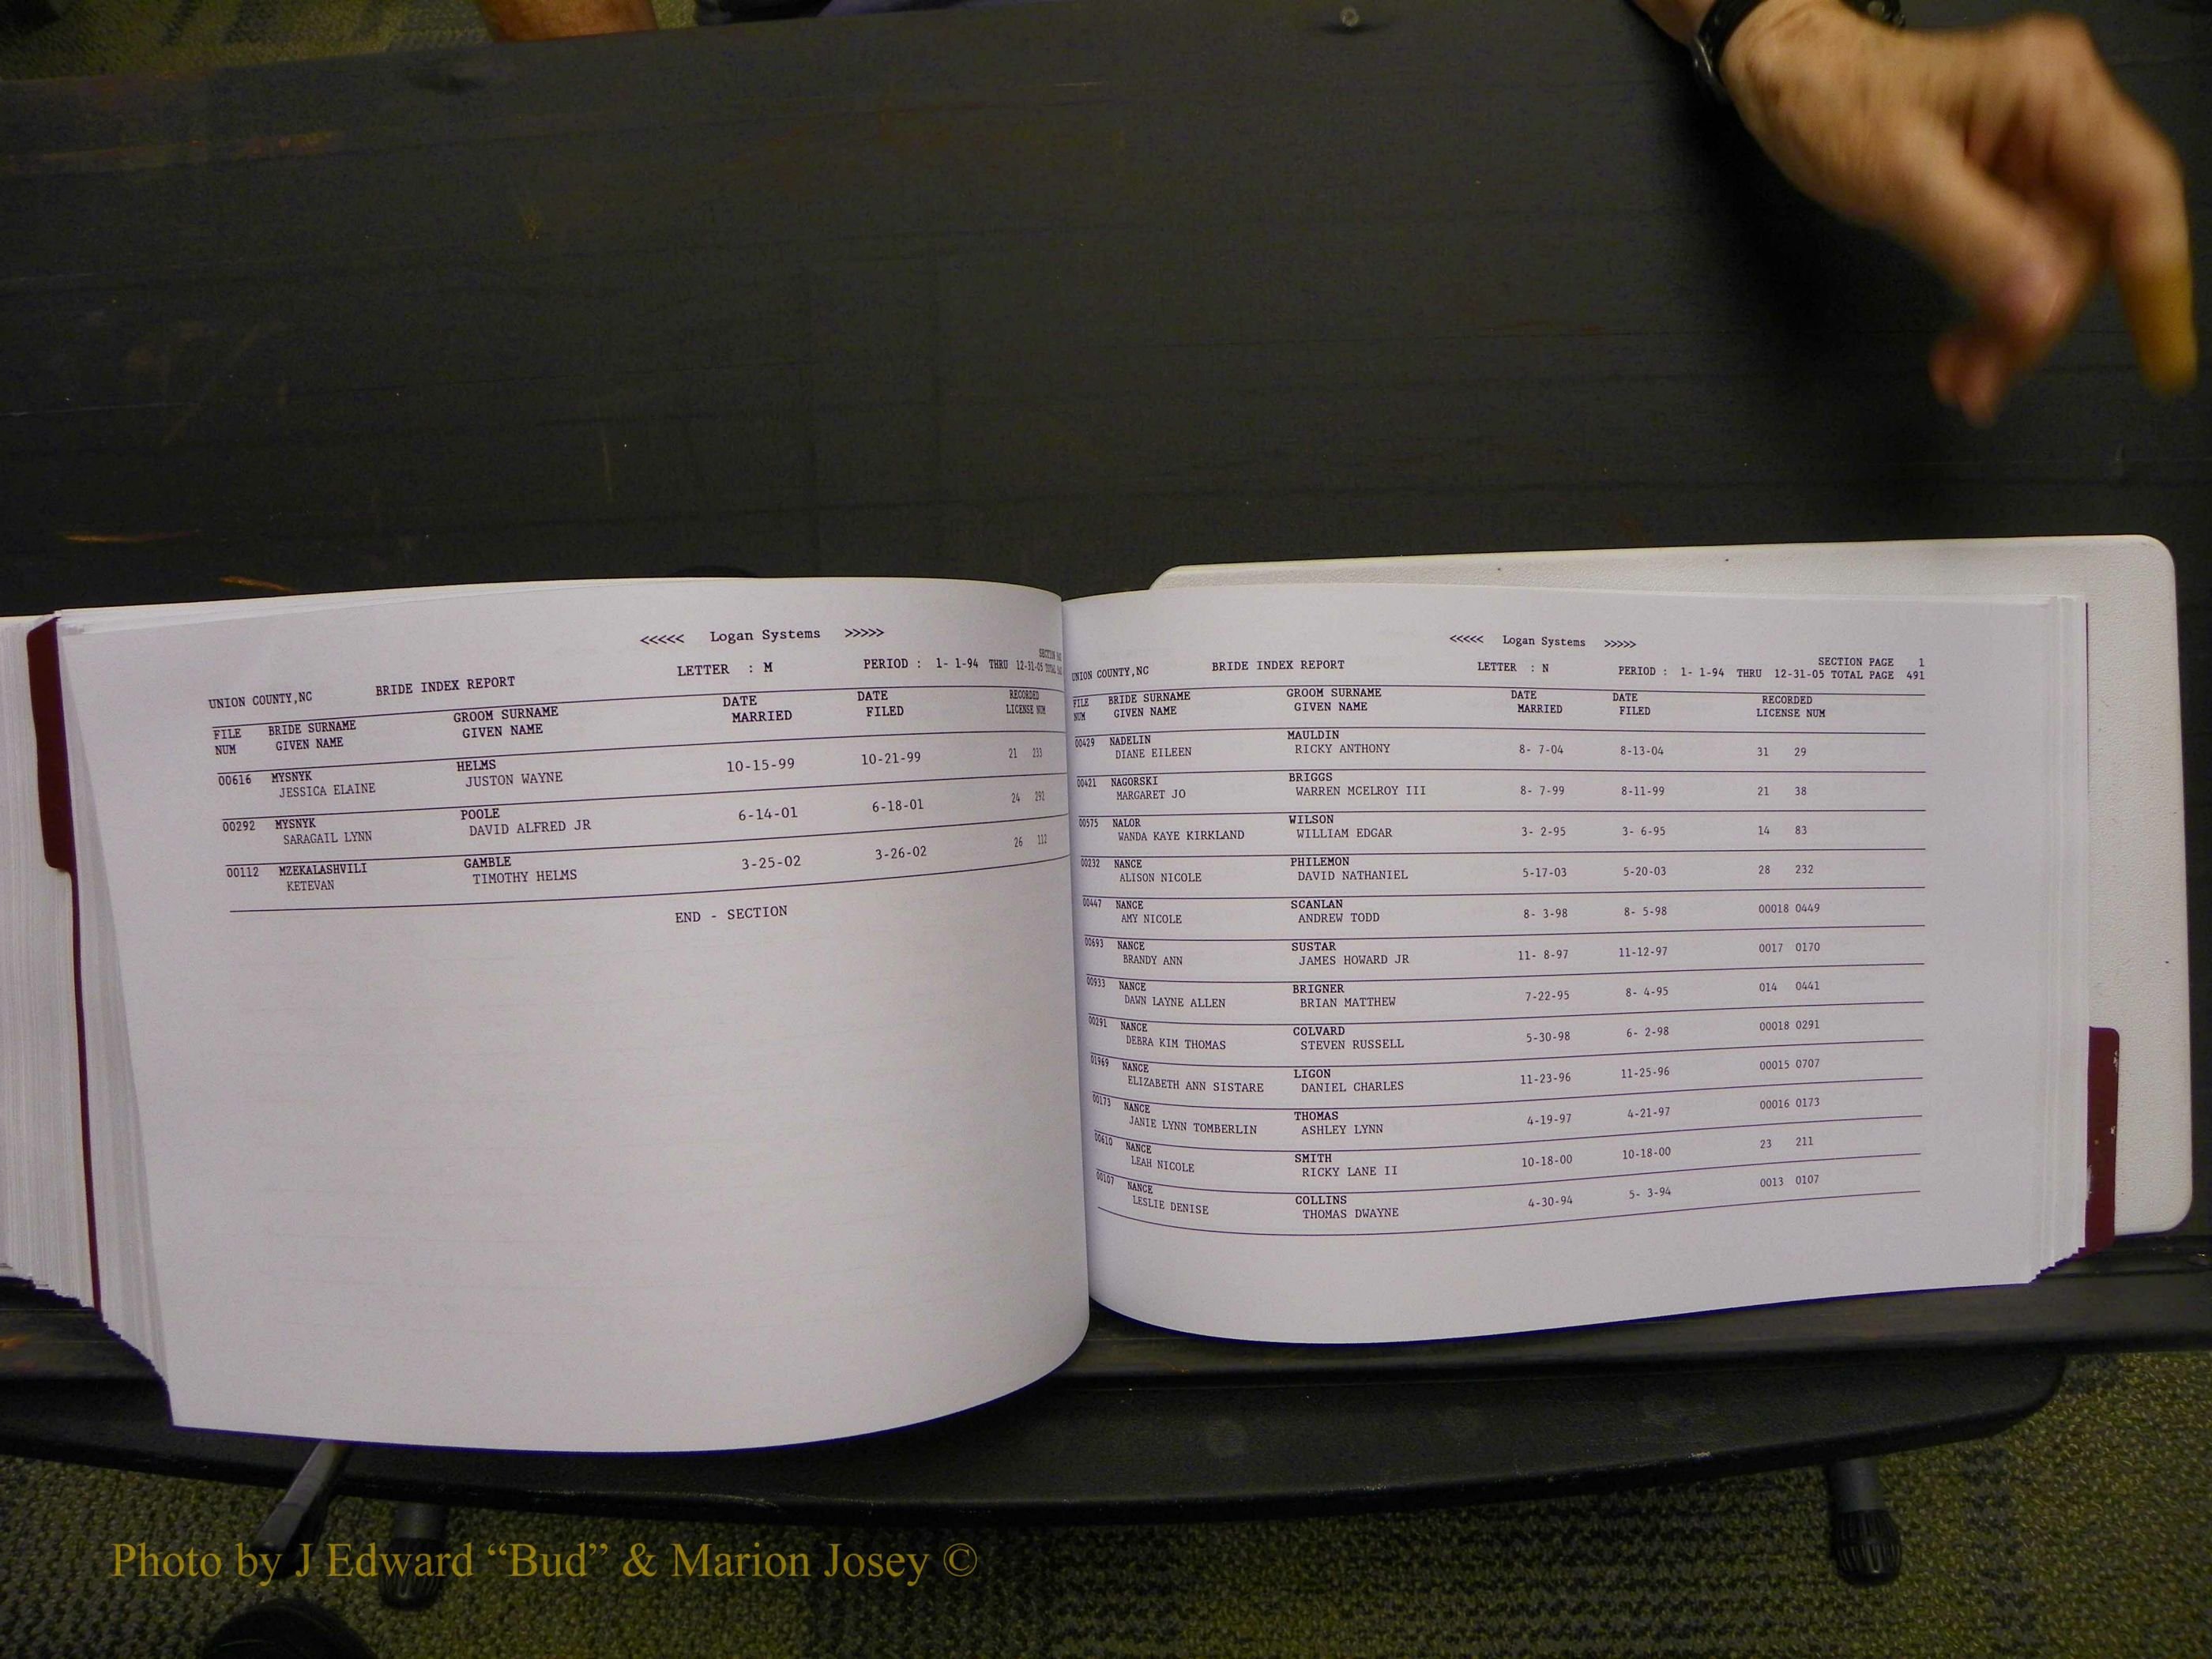 <<<<< Logan Systems >>>>>
UNION COUNTY,NC BRIDE INDEX REPORT LETTER : M PERIOD : 1- 1-94 THRU 12-31-05 TOTAL
SECTION
FILE BRIDE SURNAME GROOM SURNAME DATE DATE RECORDED
NUM GIVEN NAME GIVEN NAME MARRIED FILED LICENSE NUM
00616 MYSNYK HELMS 10-15-99 10-21-99 21 233
JESSICA ELAINE JUSTON WAYNE
00292 MYSNYK POOLE 6-14-01 6-18-01 24 292
SARAGAIL LYNN DAVID ALFRED JR
00112 MZEKALASHVILI GAMBLE 3-25-02 3-26-02 26 112
KETEVAN TIMOTHY HELMS
END - SECTION
<<<<< Logan Systems >>>>>
SECTION PAGE 1
UNION COUNTY,NC BRIDE INDEX REPORT LETTER : N PERIOD : 1- 1-94 THRU 12-31-05 TOTAL PAGE 491
FILE BRIDE SURNAME GROOM SURNAME DATE DATE RECORDED
NUM GIVEN NAME GIVEN NAME MARRIED FILED LICENSE NUM
00429 NADELIN MAULDIN 8- 7-04 8-13-04 31 29
DIANE EILEEN RICKY ANTHONY
00421 NAGORSKI BRIGGS 8- 7-99 8-11-99 21 38
MARGARET JO WARREN MCELROY III
00575 NALOR WILSON 3- 2-95 3- 6-95 14 83
WANDA KAYE KIRKLAND WILLIAM EDGAR
00232 NANCE PHILEMON 5-17-03 5-20-03 28 232
ALISON NICOLE DAVID NATHANIEL
00447 NANCE SCANLAN 8- 3-98 8- 5-98 00018 0449
AMY NICOLE ANDREW TODD
00693 NANCE SUSTAR 11- 8-97 11-12-97 0017 0170
BRANDY ANN JAMES HOWARD JR
00933 NANCE BRIGNER 7-22-95 8- 4-95 014 0441
DAWN LAYNE ALLEN BRIAN MATTHEW
00291 NANCE COLVARD 5-30-98 6- 2-98 00018 0291
DEBRA KIM THOMAS STEVEN RUSSELL
01969 NANCE LIGON 11-23-96 11-25-96 00015 0707
ELIZABETH ANN SISTARE DANIEL CHARLES
00173 NANCE THOMAS 4-19-97 4-21-97 00016 0173
JANIE LYNN TOMBERLIN ASHLEY LYNN
00610 NANCE SMITH 10-18-00 10-18-00 23 211
LEAH NICOLE RICKY LANE II
00107 NANCE COLLINS 4-30-94 5- 3-94 0013 0107
LESLIE DENISE THOMAS DWAYNE
Photo by J Edward “Bud” & Marion Josey ©